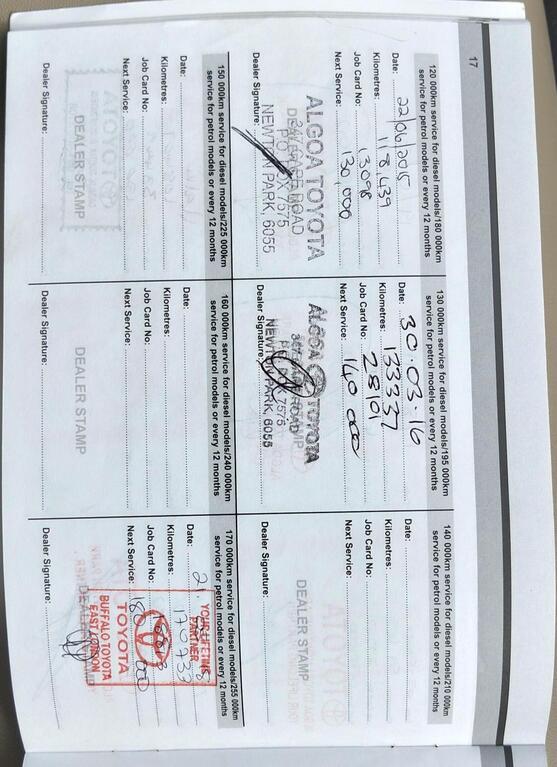 17
120 000km service for diesel models/180 000km
service for petrol models or every 12 months
Date: 22/06/2015
Kilometres: 118,439
Job Card No: 13098
Next Service: 130,000
ALGOA TOYOTA
347 CAPE ROAD
P.O. BOX 7575
NEWTON PARK, 6055
Dealer Signature:
130 000km service for diesel models/195 000km
service for petrol models or every 12 months
Date: 30.03.16
Kilometres: 133337
Job Card No: 28101
Next Service: 140 000
ALGOA TOYOTA
347 CAPE ROAD
P.O. BOX 7575
NEWTON PARK, 6055
Dealer Signature:
140 000km service for diesel models/210 000km
service for petrol models or every 12 months
Date:
Kilometres:
Job Card No:
Next Service:
DEALER STAMP
Dealer Signature:
150 000km service for diesel models/225 000km
service for petrol models or every 12 months
Date:
Kilometres:
Job Card No:
Next Service:
DEALER STAMP
Dealer Signature:
160 000km service for diesel models/240 000km
service for petrol models or every 12 months
Date:
Kilometres:
Job Card No:
Next Service:
DEALER STAMP
Dealer Signature:
170 000km service for diesel models/255 000km
service for petrol models or every 12 months
Date:
Kilometres:
Job Card No:
Next Service:
YOUR LIFETIME
PARTNER
TOYOTA
BUFFALO TOYOTA
EAST LONDON
DEALER
Dealer Signature: